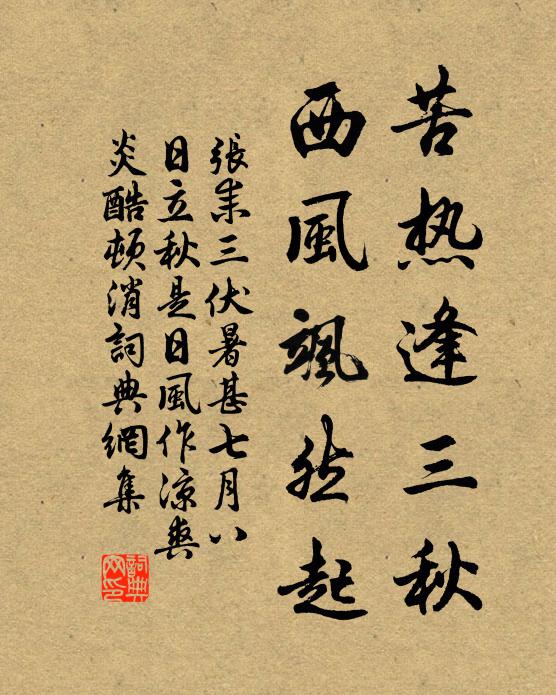 苦热逢三秋
西風颯然起
張耒三伏暑甚七月八
日立秋是日風作凉爽
炎酷頓消詞典網集
詞典网印